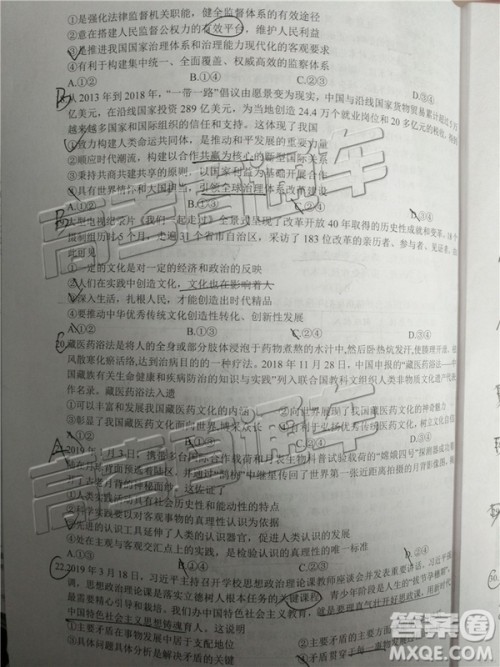 ①是强化法律监督机关职能，健全监督体系的有效途径
②意在搭建人民监督公权力的有效平台，维护人民利益
③是推进我国国家治理体系和治理能力现代化的客观要求
④有利于构建集中统一、全面覆盖、权威高效的监察体系
A.①② B.①④ C.②③ D.③④
B 从 2013 年到 2018 年，“一带一路”倡议由愿景变为现实，中国与沿线国家货物贸易累计超过 5 万
亿美元，在沿线国家投资 289 亿美元，为当地创造 24.4 万个就业岗位和 20 多亿元的税收，得到
越来越多国家和国际组织的信任和支持。这体现了我国
①致力构建人类命运共同体，是推动和平发展的重要力量
②顺应时代潮流，构建以合作共赢为核心的新型国际关系
③秉持共商共建共享的原则，以国家利益为基础开展合
④具有世界情怀和大国担当，引领全球治理体系改革建设
A.①② C.②③ D.③④
B 大型电视纪录片《我们一起走过》全景式呈现了改革开放 40 年取得的历史性成就和变革。18 个
摄制组历时 5 个月，走遍 31 个省市自治区，采访了 183 位改革的亲历者、参与者、见证者。由
此可见
①一定的文化是对一定的经济和政治的反映
②人们在实践中创造文化，文化也在影响着人
③深入生活，扎根人民，才能创造出时代精品
④要推动中华优秀传统文化创造性转化、创新性发展
A.①② C.②④ D.③④
C 20.藏医药浴法是将人的全身或部分肢体浸泡于药物煮熬的水汁中,然后卧热炕发汗,使腠理开泄、祛
风散寒化瘀活络,达到治病目的的一种疗法。2018 年 11 月 28 日，中国申报的“藏医药浴法——中
国藏族有关生命健康和疾病防治的知识与实践”列入联合国教科文组织人类非物质文化遗产代表
作名录。藏医药浴法入遗
①可以丰富和发展我国藏医药文化的内涵 ②向世界展现了我国藏医药文化的神奇魅力
③彰显了我国藏医药文化历史悠久、博采众长 ④有利于弘扬优秀传统文化
A 2019 年 1 月 3 日，携带
在月球背面预选着陆区，并通过“鹊桥”中继星传回了世界第一张近距离拍摄的月背影像图，揭
开了古老月背的神秘面纱。这佐证了
①人类实践活动具有社会历史性和能动性的特点
②科学实践要以对客观事物的真理性认识为依据
③先进的认识工具延伸了人类的认识器官，促进人类认识的发展
④处在主观与客观交汇点上的实践，是检验认识的真理性的唯一标准
A.①③ B.①④ C.②③ D.②④
C 22.2019 年 3 月 18 日，习近平主持召开学校思想政治理论课教师座谈会并发表重要讲话。习近平强
调，思想政治理论课是落实立德树人根本任务的关键课程，青少年阶段是人生的“拔节孕穗期”，
最需要精心引导和栽培，我们办中国特色社会主义教育，就是要理直气壮开好思政课，用新时代
中国特色社会主义思想铸魂育人。这说明
①主要矛盾在事物发展中居于支配地位
③具体问题具体分析是解决矛盾的关键
高考直通车
答案圈
MXQE.COM